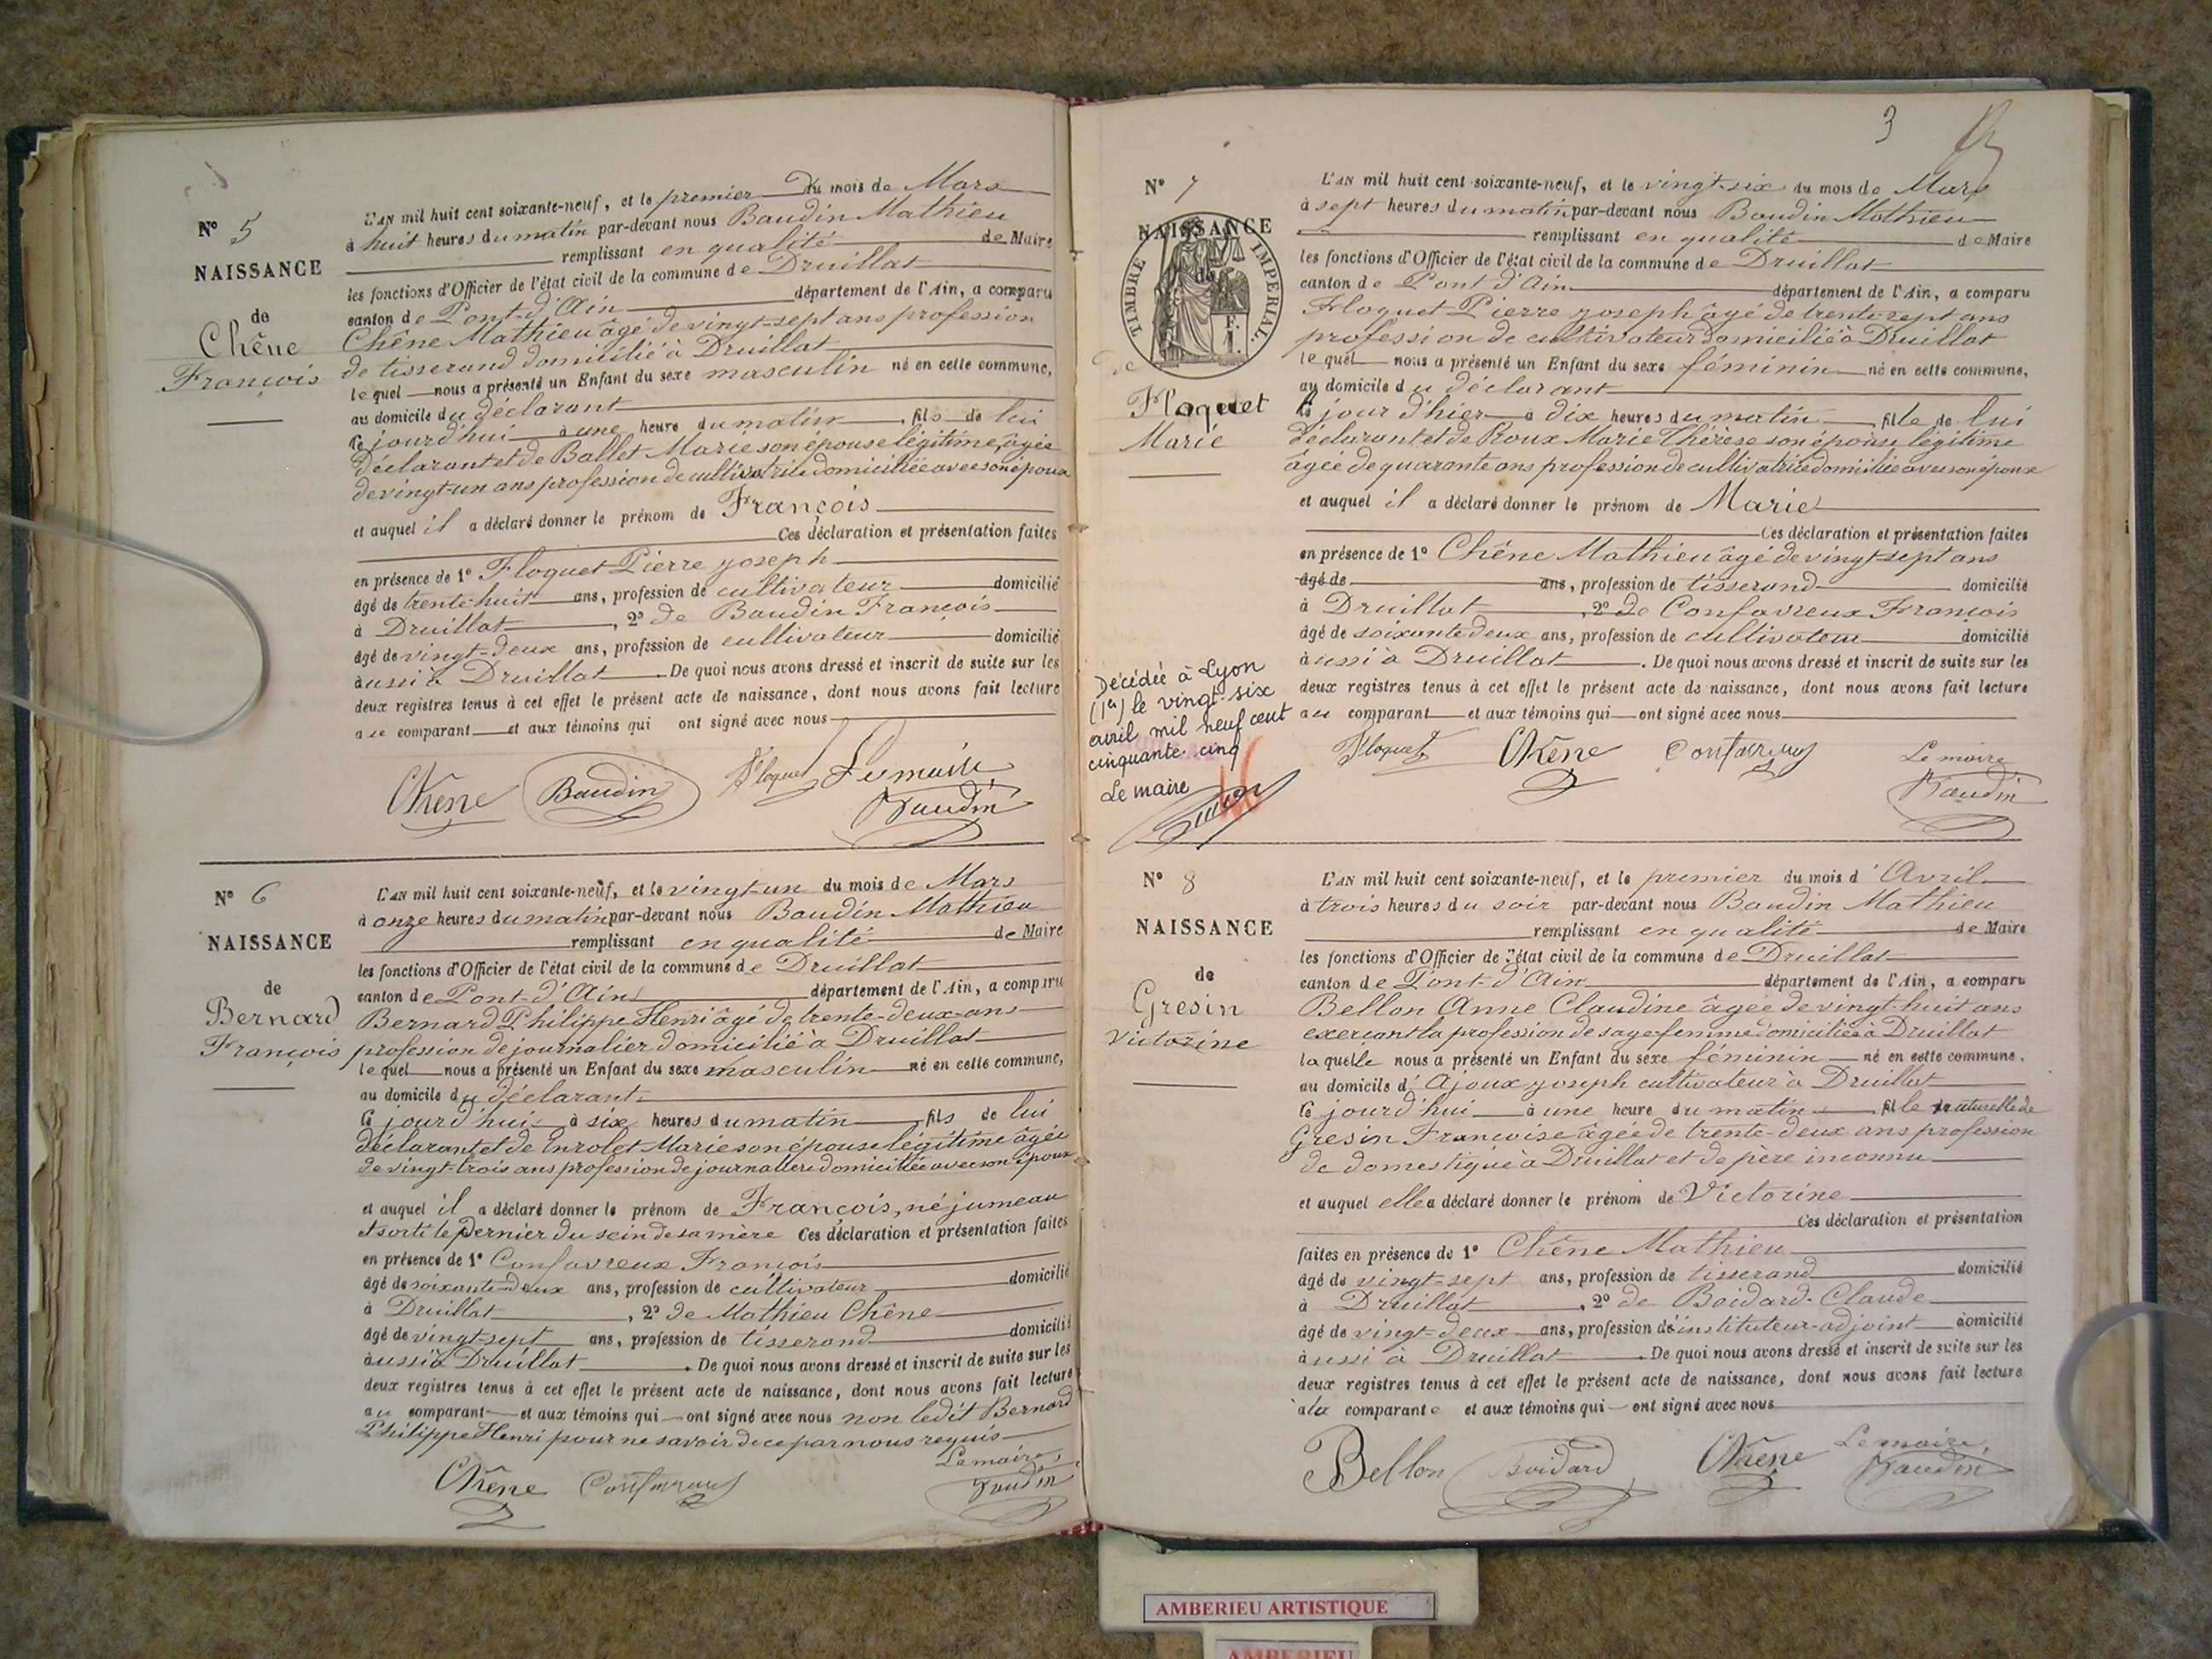 Nº 5
NAISSANCE
de
Chêne
François
L'AN mil huit cent soixante-neuf, et le premier du mois de Mars
à huit heures du matin par-devant nous Baudin Mathieu
remplissant en qualité de Maire
les fonctions d'Officier de l'état civil de la commune de Druillat
canton de Pont-d'Ain département de l'Ain, a comparu
Chêne Mathieu âgé de vingt-sept ans profession
de tisserand domicilié à Druillat
lequel nous a présenté un Enfant du sexe masculin né en cette commune,
au domicile du déclarant
ce jourd'hui à une heure du matin, fils de lui
déclarant et de Ballet Marie son épouse légitime, âgée
de vingt-un ans profession de cultivatrice domiciliée avec son époux
et auquel il a déclaré donner le prénom de François
Ces déclaration et présentation faites
en présence de 1º Floquet Pierre yoseph
âgé de trente-huit ans, profession de cultivateur domicilié
à Druillat, 2º de Baudin François
âgé de vingt-deux ans, profession de cultivateur domicilié
aussi à Druillat. De quoi nous avons dressé et inscrit de suite sur les
deux registres tenus à cet effet le présent acte de naissance, dont nous avons fait lecture
au comparant et aux témoins qui ont signé avec nous
Chêne Baudin Floquet Le maire
Baudin
Nº 6
NAISSANCE
de
Bernard
François
L'AN mil huit cent soixante-neuf, et le vingt-un du mois de Mars
à onze heures du matin par-devant nous Baudin Mathieu
remplissant en qualité de Maire
les fonctions d'Officier de l'état civil de la commune de Druillat
canton de Pont-d'Ain département de l'Ain, a comparu
Bernard Philippe Henri âgé de trente-deux-ans
profession de journalier domicilié à Druillat
lequel nous a présenté un Enfant du sexe masculin né en cette commune,
au domicile du déclarant
ce jourd'hui à six heures du matin, fils de lui
déclarant et de Marie son épouse légitime âgée
de vingt-trois ans profession de journalière domiciliée avec son époux
et auquel il a déclaré donner le prénom de François, né jumeau
et sorti le dernier du sein de sa mère Ces déclaration et présentation faites
en présence de 1º Confavreux François
âgé de soixante-deux ans, profession de cultivateur domicilié
à Druillat, 2º de Mathieu Chêne
âgé de vingt-sept ans, profession de tisserand domicilié
aussi à Druillat. De quoi nous avons dressé et inscrit de suite sur les
deux registres tenus à cet effet le présent acte de naissance, dont nous avons fait lecture
au comparant et aux témoins qui ont signé avec nous non ledit Bernard
Philippe Henri pour ne savoir de ce par nous requis
Chêne Confavreux Le maire
Baudin
3
Nº 7
NAISSANCE
de
TIMBRE IMPERIAL
Floquet
Marie
Décédée à Lyon
(1er) le vingt-six
avril mil neuf cent
cinquante-cinq
Le maire
L'AN mil huit cent soixante-neuf, et le vingt-six du mois de Mars
à sept heures du matin par-devant nous Baudin Mathieu
remplissant en qualité de Maire
les fonctions d'Officier de l'état civil de la commune de Druillat
canton de Pont d'Ain département de l'Ain, a comparu
Floquet Pierre yoseph âgé de trente-sept ans
profession de cultivateur domicilié à Druillat
lequel nous a présenté un Enfant du sexe féminin né en cette commune,
au domicile du déclarant
le jour d'hier à dix heures du matin, fille de lui
déclarant et de Roux Marie Thérèse son épouse légitime
âgée de quarante ans profession de cultivatrice domiciliée avec son époux
et auquel il a déclaré donner le prénom de Marie
Ces déclaration et présentation faites
en présence de 1º Chêne Mathieu âgé de vingt-sept ans
âgé de ans, profession de tisserand domicilié
à Druillat, 2º de Confavreux François
âgé de soixante deux ans, profession de cultivateur domicilié
aussi à Druillat. De quoi nous avons dressé et inscrit de suite sur les
deux registres tenus à cet effet le présent acte de naissance, dont nous avons fait lecture
au comparant et aux témoins qui ont signé avec nous
Floquet Chêne Confavreux Le maire
Baudin
Nº 8
NAISSANCE
de
Gresin
Victorine
L'AN mil huit cent soixante-neuf, et le premier du mois d'Avril
à trois heures du soir par-devant nous Baudin Mathieu
remplissant en qualité de Maire
les fonctions d'Officier de l'état civil de la commune de Druillat
canton de Pont-d'Ain département de l'Ain, a comparu
Bellon Anne Claudine âgée de vingt-huit ans
exerçant la profession de sage-femme domiciliée à Druillat
laquelle nous a présenté un Enfant du sexe féminin né en cette commune,
au domicile d'Ajoux yoseph cultivateur à Druillat
ce jourd'hui à une heure du matin, fille naturelle de
Gresin Françoise âgée de trente-deux ans profession
de domestique à Druillat et de père inconnu
et auquel elle a déclaré donner le prénom de Victorine
Ces déclaration et présentation
faites en présence de 1º Chêne Mathieu
âgé de vingt-sept ans, profession de tisserand domicilié
à Druillat, 2º de Boidard Claude
âgé de vingt-deux ans, profession d'instituteur-adjoint domicilié
aussi à Druillat. De quoi nous avons dressé et inscrit de suite sur les
deux registres tenus à cet effet le présent acte de naissance, dont nous avons fait lecture
à la comparante et aux témoins qui ont signé avec nous
Bellon Boidard Chêne Le maire
Baudin
AMBERIEU ARTISTIQUE
AMBERIEU